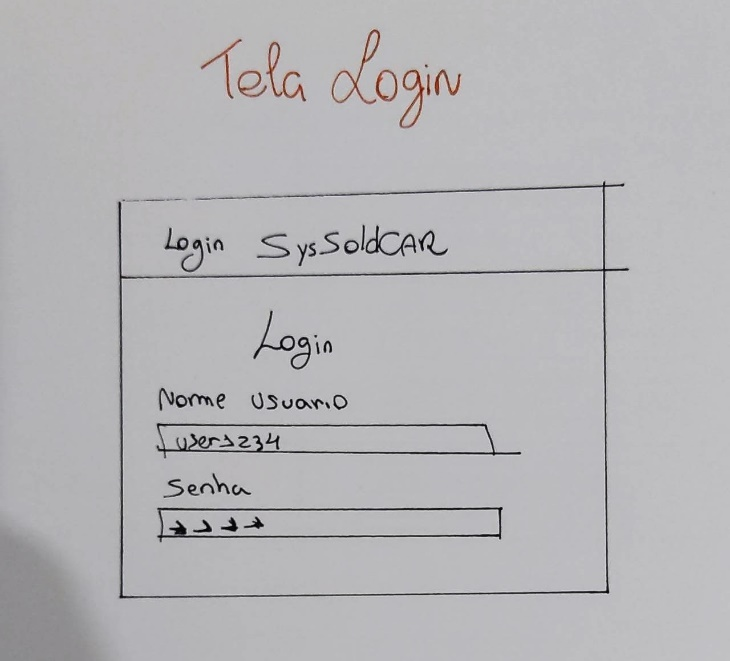 Tela Login
Login SysSoldCAR
Login
Nome Usuario
user1234
Senha
****